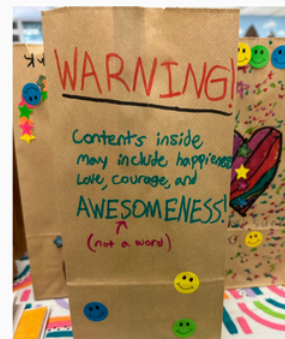 WARNING!
Contents inside
may include happieness
Love, courage, and
AWESOMENESS!
(not a word)